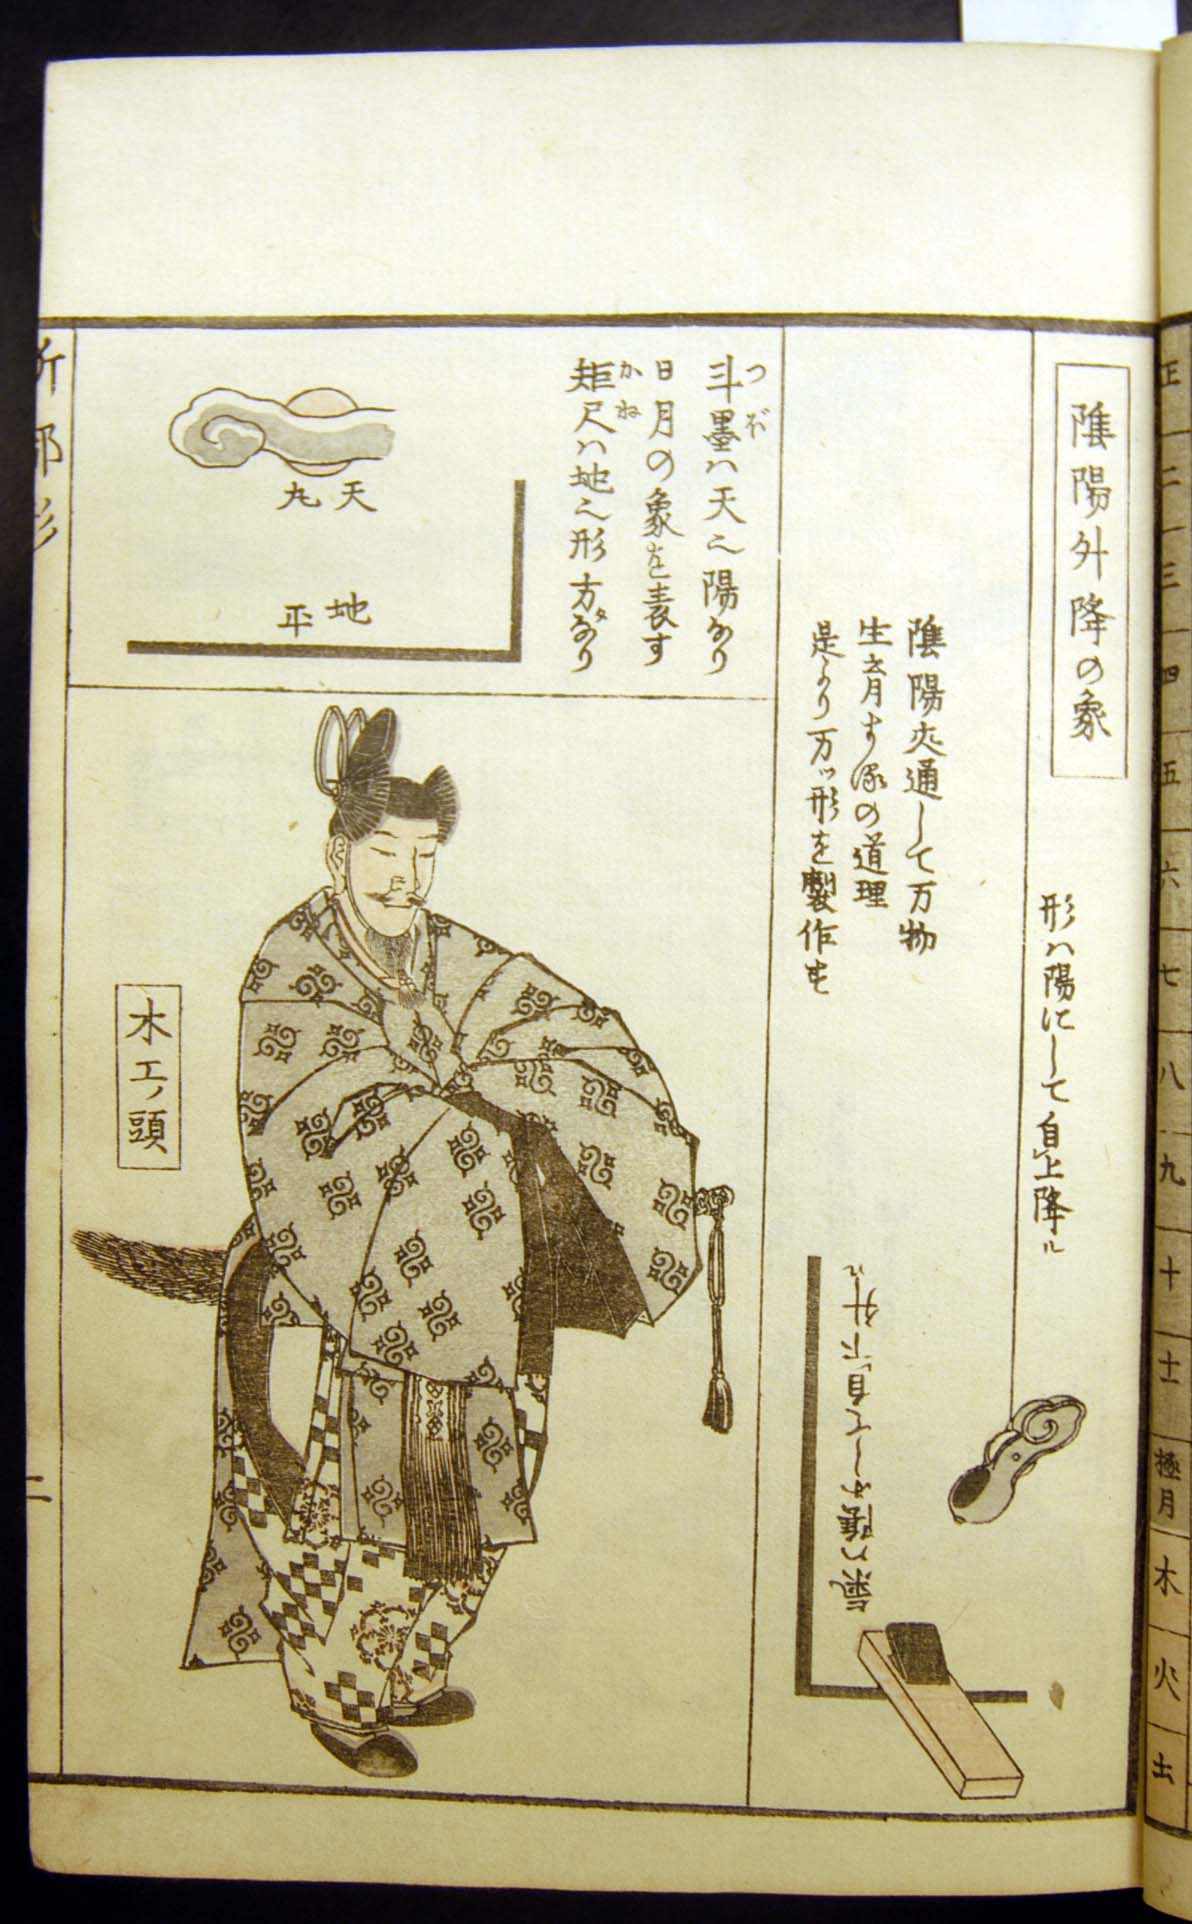 陰陽外降の象
形ハ陽にして自上降ル
陰陽火通して万物
生育する
の道理
是より万ッ形を製作す
気ハ陰にして自下外ル
斗墨ハ天之陽なり
つぼ
日月の象を表す
矩尺ハ地之形方なり
かね
天
丸
地
平
木工ノ頭
二
正
二
三
四
五
六
七
八
九
十
十一
極月
木
火
土